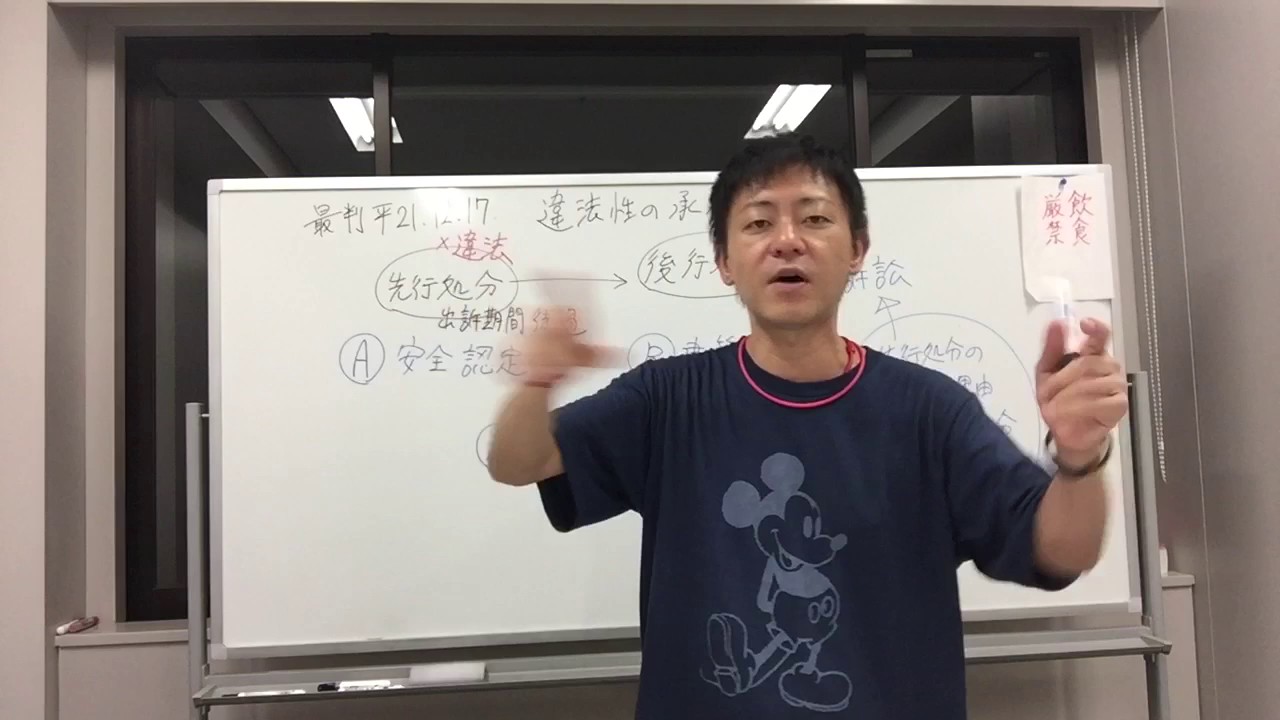 最判平21.12.17 違法性の承
×違法
先行処分 後行
訴訟
出訴期間経過
Ⓐ 安全認定
先行処分の
理由
飲食
厳禁